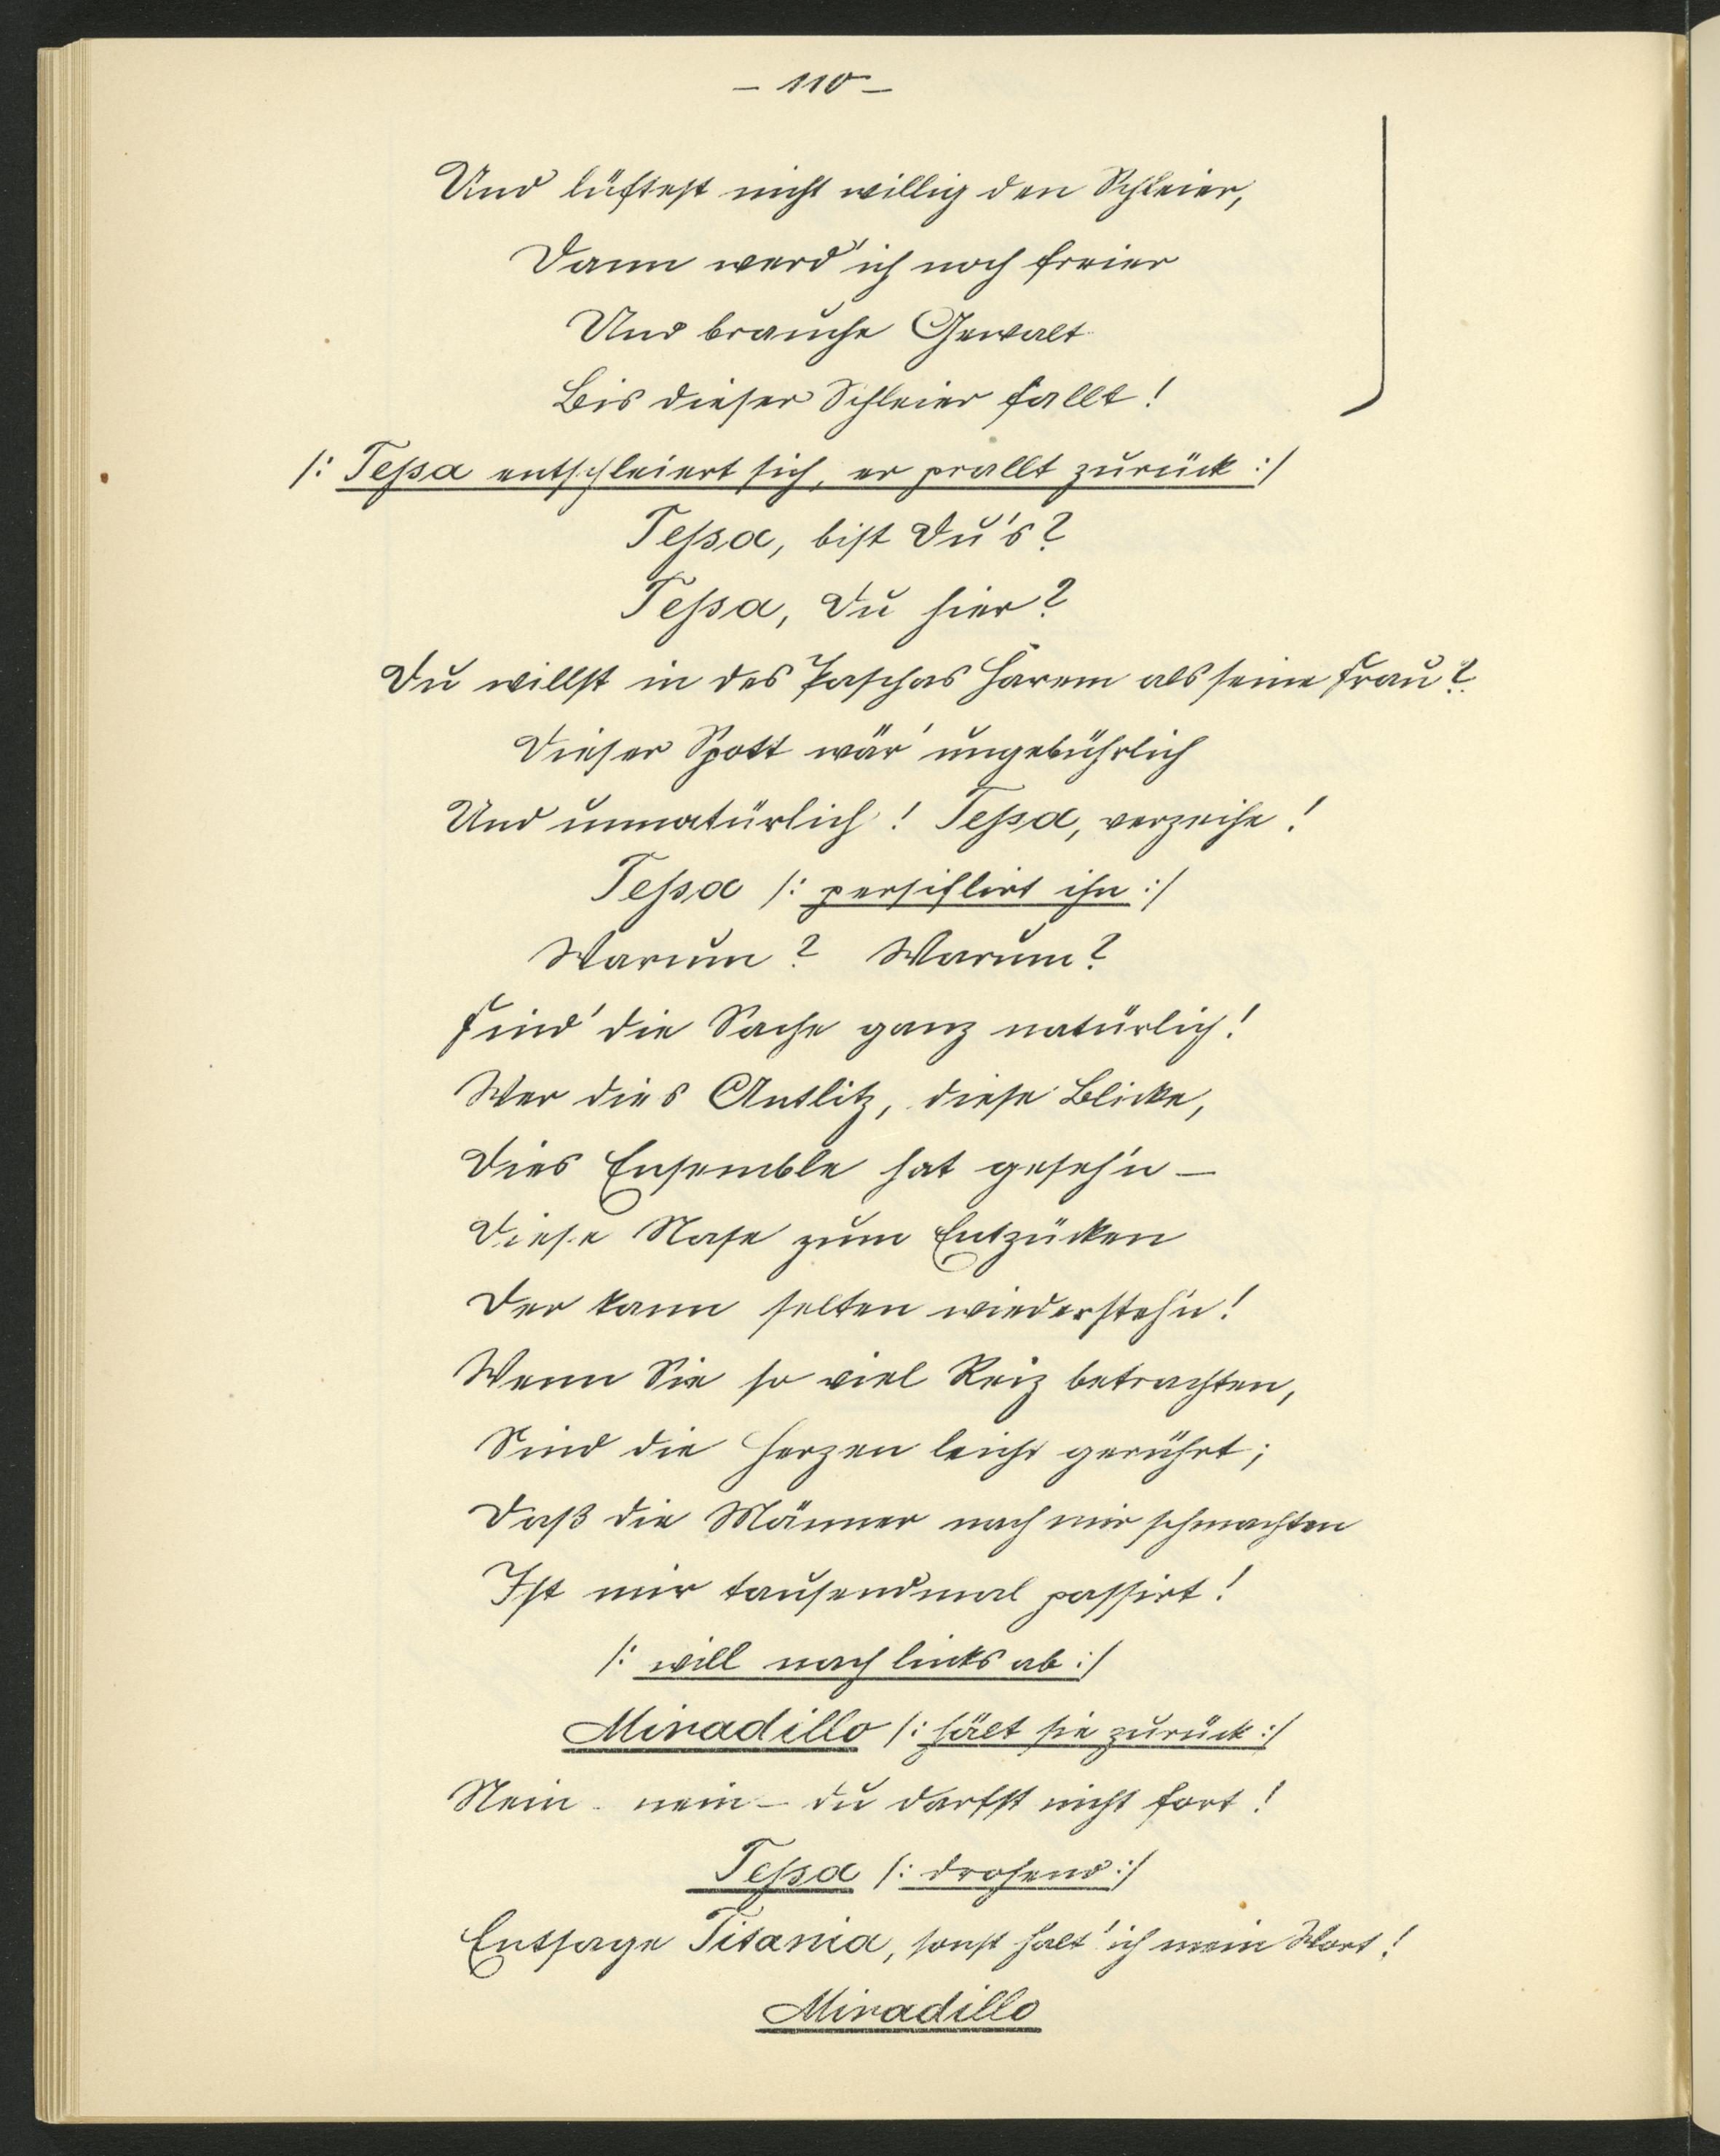 – 110 –
Und lüftest nicht willig den Schleier,
Dann werd' ich noch freier
Und brauche Gewalt
Bis dieser Schleier fallt!
/: Tessa entschleiert sich, er prallt zurück :/
Tessa, bist Du's?
Tessa, Du hier?
Du willst in des Paschas Harem als seine Frau?
Dieser Spott wär' ungebührlich
Und unnatürlich! Tessa, verzeihe!
Tessa /: persiflirt ihn :/
Warum? Warum?
Find' die Sache ganz natürlich!
Wer dies Antlitz, diese Blicke,
Dies Ensemble hat geseh'n –
Diese Nase zum Entzücken
Der kann selten wiedersteh'n!
Wenn Sie so viel Reiz betrachten,
Sind die Herzen leicht gerührt;
Daß die Männer nach mir schmachten
Ist mir tausendmal passirt!
/: will nach links ab :/
Miradillo /: hält sie zurück :/
Nein - nein – du darfst nicht fort!
Tessa /: drohend :/
Entsage Titania, sonst halt' ich mein Wort!
Miradillo